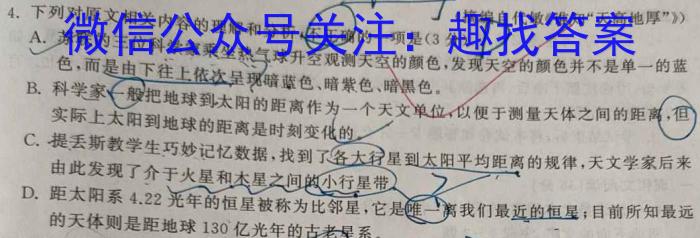 4. 下列对原文相关内容的理解和
项是(3
“天高地厚”》)
微信公众号关注：趣找答案
A.
气球升空观测天空的颜色，发现天空的颜色并不是单一的蓝
色，而是由下往上依次呈现暗蓝色、暗紫色、暗黑色。
B. 科学家一般把地球到太阳的距离作为一个天文单位，以便于测量天体之间的距离，但
实际上太阳到地球的距离是时刻变化的。
C. 提丢斯教学生巧妙记忆数据，找到了各大行星到太阳平均距离的规律，天文学家后来
由此发现了介于火星和木星之间的小行星带。
D. 距太阳系 4.22 光年的恒星被称为比邻星，它是唯一离我们最近的恒星；目前所知最远
的天体则是距地球 130 亿光年的古老星系。